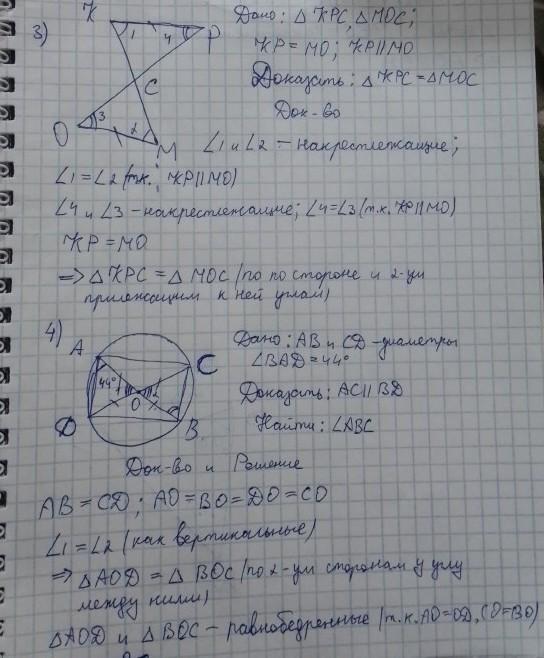 3)
K
P
1
4
C
O
3
2
M
Дано: △ KPC, △MOC;
KP = MO; KP∥MO
Доказать: △ KPC = △MOC
Док-во
∠1 и ∠2 – накрестлежащие;
∠1 = ∠2 (т.к. KP∥MO)
∠4 и ∠3 – накрестлежащие; ∠4=∠3 (т.к. KP∥MO)
KP = MO
=> △ KPC = △ MOC (по по стороне и 2-ум
прилежащим к ней углам)
4)
A
C
44°
1
2
O
D
B
Дано: AB и CD -диаметры
∠BAD = 44°
Доказать: AC∥BD
Найти: ∠ABC
Док-во и Решение
AB = CD; AO = BO = DO = CO
∠1 = ∠2 (как вертикальные)
=> △AOD = △ BOC (по 2-ум сторонам и углу
между ними)
△AOD и △ BOC – равнобедренные (т.к. AO = OD, CO = BO)